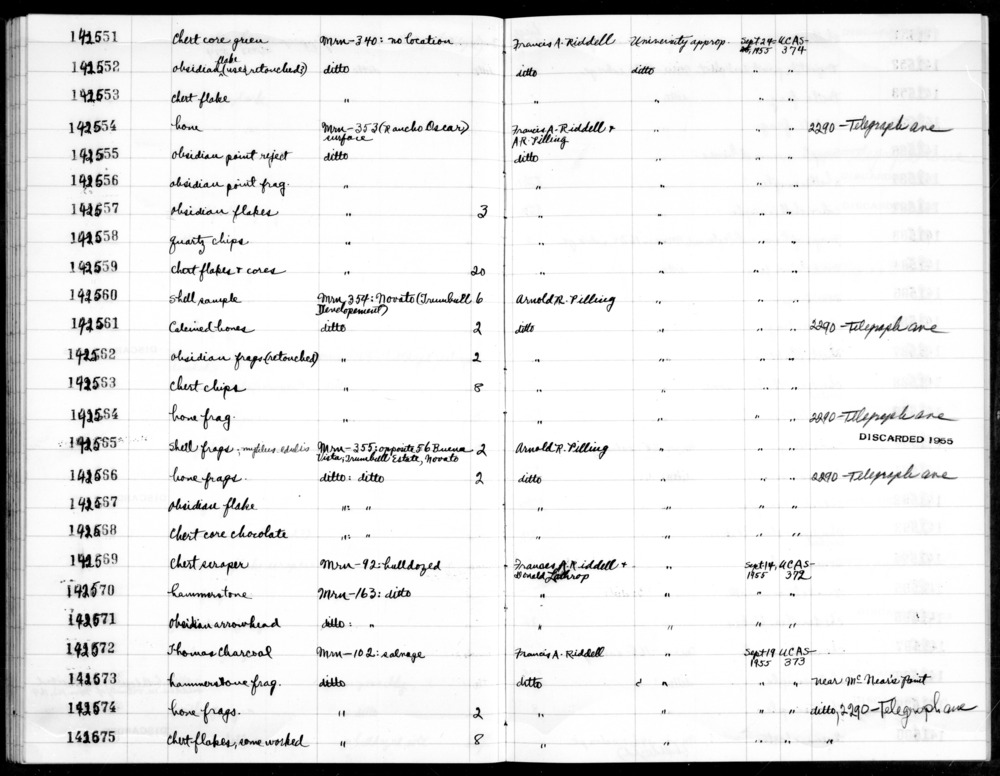 142551 Chert core green Mrn-340: no location Francis A. Riddell University approp. Sept 24, 1955 UCAS-374
142552 obsidian flake (user retouched) ditto ditto ditto " "
142553 chert flake " " " " "
142554 bone Mrn-353 (Rancho Oscar) surface Francis A. Riddell + A.R. Pilling " " " 2290-Telegraph ave
142555 obsidian point reject ditto ditto " " "
142556 obsidian point frag. " " " " "
142557 obsidian flakes " 3 " " " "
142558 quartz chips " " " " "
142559 chert flakes + cores " 20 " " " "
142560 Shell sample Mrn-354: Novato (Trumbull Developement) 6 Arnold R. Pilling " " "
142561 Calcined bones ditto 2 ditto " " " 2290-Telegraph ave
142562 obsidian frags (retouched) " 2 " " " "
142563 Chert chips " 8 " " " "
142564 bone frag. " " " " " 2290-Telegraph ave
DISCARDED 1955
142565 Shell frags, mytilus edulis Mrn-355: opposite 56 Buena Vista, Trumbull Estate, Novato 2 Arnold R. Pilling " " "
142566 bone frags. ditto: ditto 2 ditto " " " 2290-Telegraph ave
142567 obsidian flake ": " " " " "
142568 Chert core chocolate ": " " " " "
142569 Chert scraper Mrn-92: bulldozed Frances A. Riddell + Donald Lathrop " Sept 14, 1955 UCAS-372
142570 hammerstone Mrn-163: ditto " " " "
142571 obsidian arrowhead ditto: " " " " "
142572 Thomas Charcoal Mrn-102: salvage Francis A. Riddell " Sept 19 1955 UCAS-373
142573 hammerstone frag. ditto ditto " " " near McNear's Point
142574 bone frags. " 2 " " " " ditto, 2290-Telegraph ave
142575 Chert flakes, some worked " 8 " " " " "